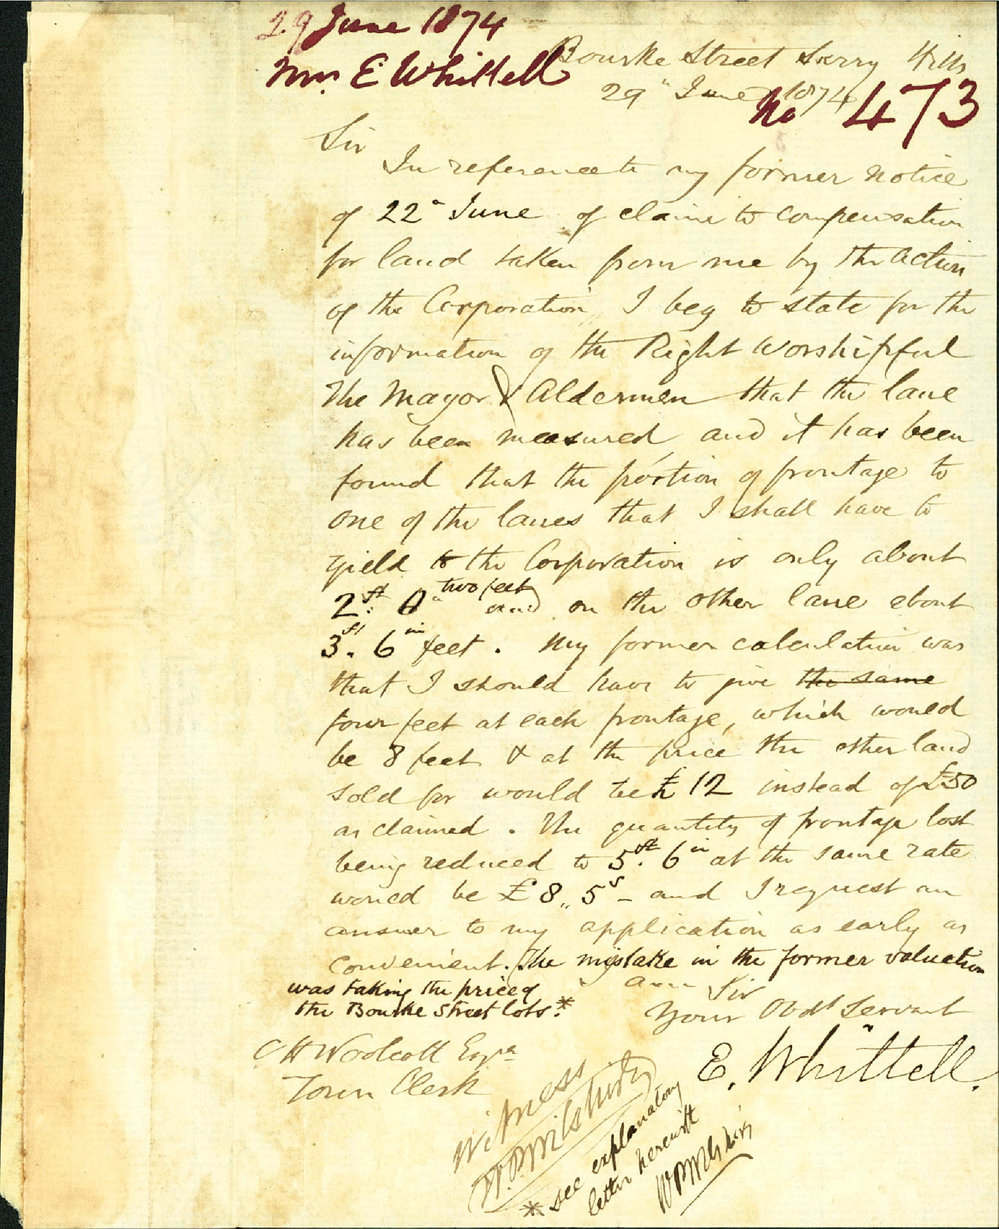 29 June 1874
Mrs. E Whittell
Bourke Street Surry Hills
29" June 1874
No 473
Sir
In reference to my former notice
of 22" June of claim to compensation
for land taken from me by the action
of the Corporation, I beg to state for the
information of the Right Worshipful
The Mayor & Aldermen that the lane
has been measured and it has been
found that the portion of frontage to
one of the lanes that I shall have to
yield to the Corporation is only about
2ft. 0" two feet and on the other lane about
3ft. 6in feet. My former calculation was
that I should have to give the same
four feet at each frontage, which would
be 8 feet & at the price the other land
sold for would be £12 instead of £50
as claimed. The quantity of frontage lost
being reduced to 5ft. 6in at the same rate
would be £8,, 5s – and I request an
answer to my application as early as
convenient. The mistake in the former valuation
was taking the price of
the Bourke Street lots.*
am Sir
Your Obdt Servant
E. Whittell.
C H Woolcott Esqre
Town Clerk
Witness
W.P. Wilshire
* see explanatory
letter herewith
W P Wilshire